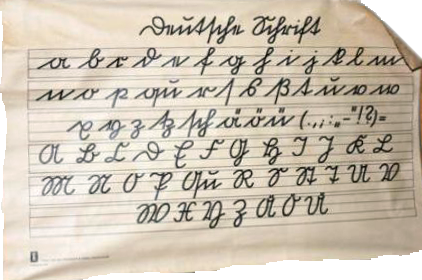 Deutsche Schrift
a b c d e f g h i j k l m
n o p qu r ſ s ß t u v w
x y z tz ſch ä ö ü (.,;:„-“!?)=
A B C D E F G H I J K L
M N O P Qu R S St T U V
W X Y Z Ä Ö Ü